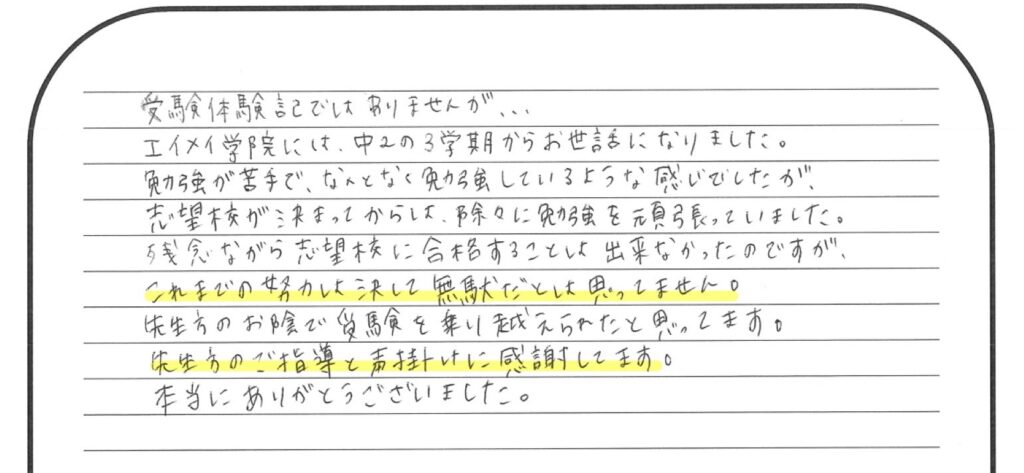 受験体験記ではありませんが、、、
エイメイ学院には、中2の3学期からお世話になりました。
勉強が苦手で、なんとなく勉強しているような感じでしたが、
志望校が決まってからは、除々に勉強を頑張っていました。
残念ながら志望校に合格することは出来なかったのですが、
これまでの努力は決して無駄だとは思ってません。
先生方のお陰で受験を乗り越えられたと思ってます。
先生方のご指導と声掛けに感謝してます。
本当にありがとうございました。